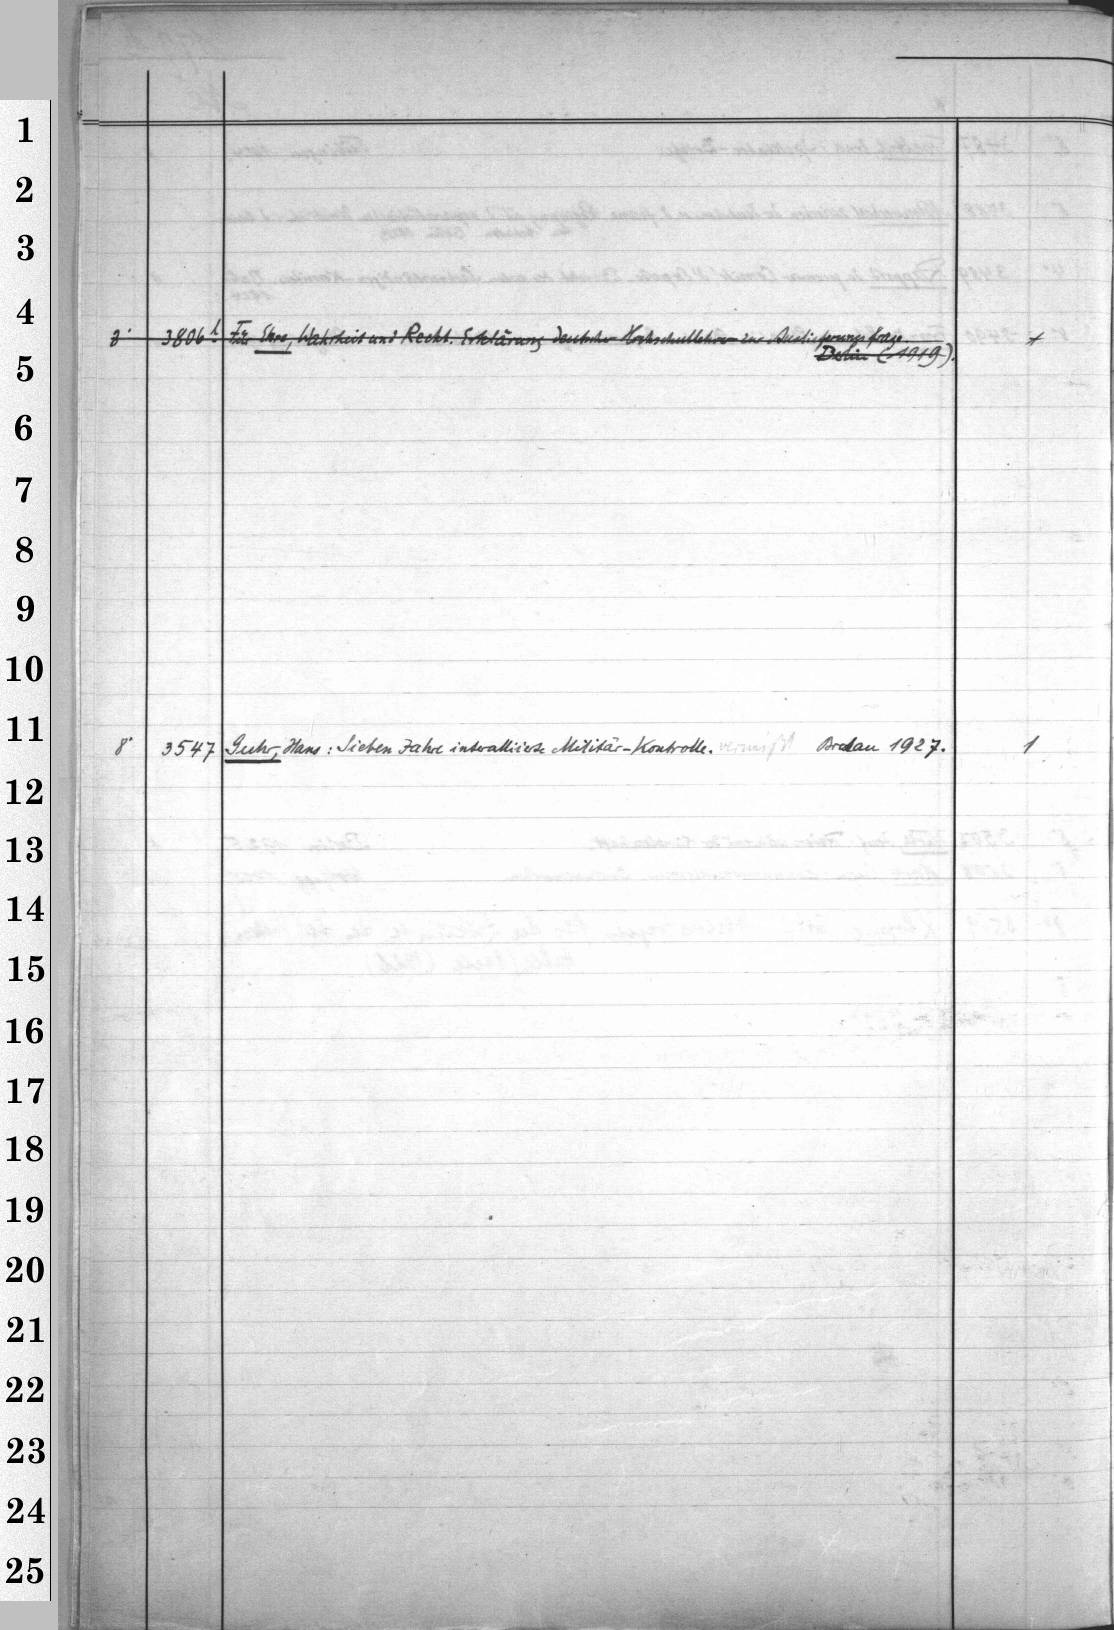 1
2
3
4
8° 3806 h Für Ehre, Wahrheit und Recht. Erklärung deutscher Hochschullehrer zur Auslieferungsfrage. +
Berlin (1919).
5
6
7
8
9
10
11
8° 3547 Guhr, Hans: Sieben Jahre interalliierte Militär-Kontrolle. vermißt Breslau 1927. 1
12
13
14
15
16
17
18
19
20
21
22
23
24
25